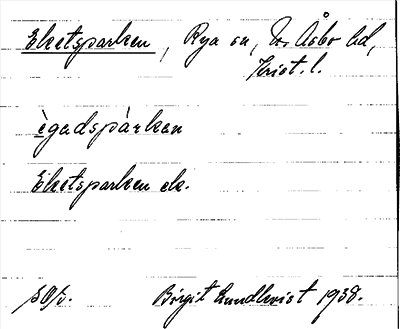 Eketsparken, Rya sn, N. Åsbo hd,
Krist. l.
ègadspàrkan
Eketsparken ek.
Birgit Lundkvist 1938.